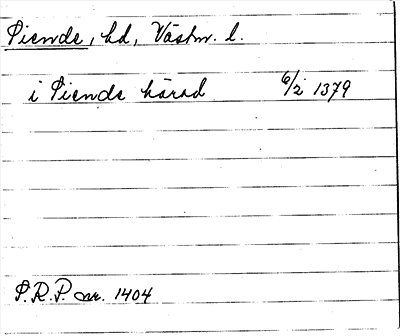 Siende, hd, Västm. l.
i Siende härad 6/2 1379
S.R.P. nr. 1404